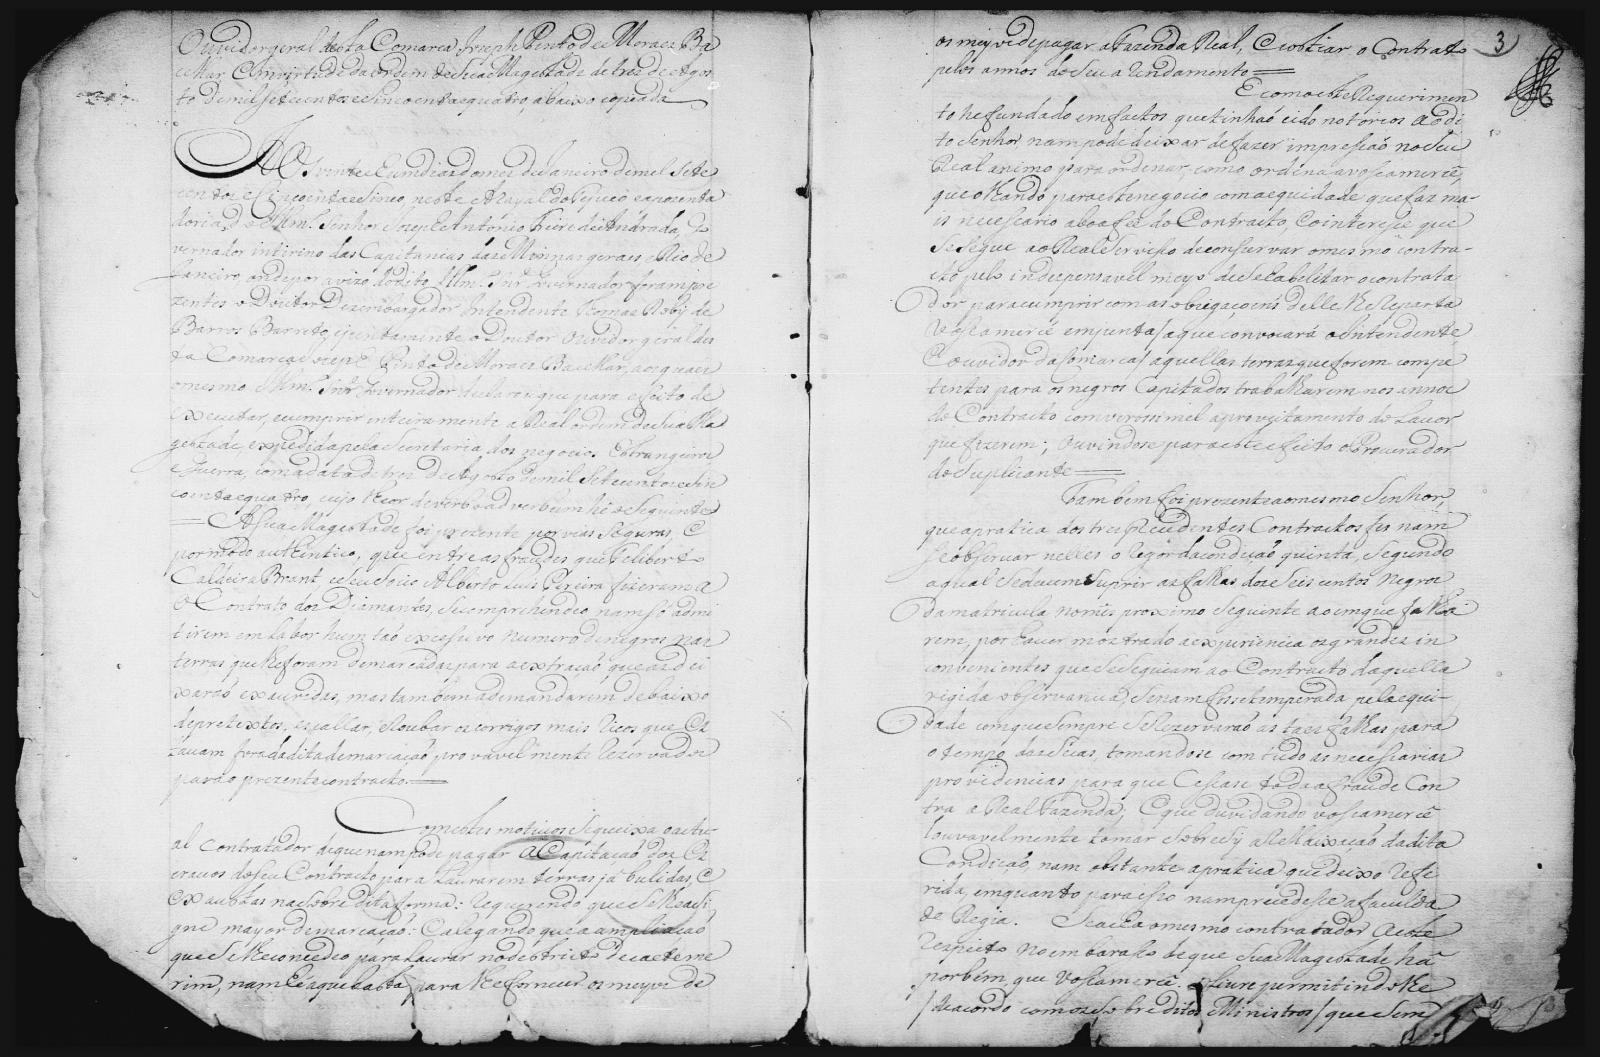 Ouvidor geral desta Comarca Joseph Pinto de Moraes Ba
celhar, Em virtude da ordem de Sua Magestade de tres de Agos
to de mil setecentos e sincoenta e quatro, abaixo copiada
Aos vinte e hum dias do mez de Janeiro de mil sete
centos e sincoenta e sinco, neste Arayal do Tejuco e apozenta
doria do Illmº. Senhor Joseph Antonio Freire de Andrada, Go
vernador interino das Capitanias das Minas geraes e Rio de
Janeiro, onde por avizo do dito Illmº. Snr Governador foram pre
zentes o Doutor Dezembargador Intendente Thomaz Roby de
Barros Barreto, e juntamente o Doutor Ouvidor geral des
ta Comarca Joseph Pinto de Moraes Bacelhar, aos quaes
o mesmo Illmº. Snr Governador declarou que para effeito de
executar, e cumprir inteiramente a Real ordem de Sua Ma
gestade, expedida pela Secretaria dos negocios Estrangeiros
e Guerra, com a data de tres de Agosto de mil setecentos e sin
coenta e quatro, cujo theor de verbo ad verbum hé o seguinte
= A Sua Magestade foi prezente por vias seguras, e
por modo authentico, que entre as fraudes que Felisberto
Caldeira Brant, e seu socio Alberto Luis Pereira fizeram a
o Contrato dos Diamantes, se comprehendeo nam só admi
tirem em labor hum táo excessivo numero de negros nas
terras que lhe foram demarcadas para a extraçáo, que as dei
xaráo exauridas, mas tambem a demandarem debaixo
de pretextos, e roubar os corregos mais ricos que es
tavam fora da dita demarcaçáo provavelmente rezervados
para o prezente contracto.=
Com estes motivos se queixa o actu
al contratador de que nam pode pagar a Capitaçáo dos Es
cravos do seu Contracto para Laurarem terras já bulidas, e
exaustas na sobredita forma: Requerendo que se lhe asi
gne mayor demarcaçáo: E alegando que a ampliaçáo
que se lhe concedeo para Laurar no destricto de caeteme
rim, nam hé a que basta para lhe fornecer os meyos de
3
os meyos de pagar a Fazenda Real, e costear o Contrato
pelos annos do seu arendamento =
E como este Requerimen
to hé fundado em factos que tinháo sido notorios ao di
to Senhor nam pode deixar de fazer impressáo no seu
Real animo para ordenar, como ordena a vossamerce,
que olhando para este negocio com a equidade que faz ma
is necessario a boa fé do Contracto, e o interesse que
se segue ao Real serviso de conservar o mesmo contra
cto pelo indespensavel meyo de se habilitar o contrata
dor para cumprir com as obrigaçoens delle lhe reparta
Vossamerce em junta / a que convocará o Intendente
e Ouvidor da Comarca / aquellas terras que forem compe
tentes para os negros Capitados trabalharem nos annos
do Contracto com verosimel aproveitamento do Lavor
que fizerem; Ouvindose para este effeito o Procurador
do Suplicante =
Tambem foi prezente ao mesmo Senhor,
que a pratica dos tres precedentes Contractos fes nam
se observar nelles o rigor da condiçáo quinta, segundo
a qual se devem suprir as faltas dos seis centos negros
da matricula no mes proximo seguinte ao em que falta
rem, por haver mostrado a experiencia os grandes in
convenientes que se seguiam ao Contracto daquella
rigida observancia, se nam fosse temperada pela equi-
dade com que sempre se rezervaráo as taes faltas para
o tempo das secas, tomandose com tudo as necessarias
providencias para que cessase toda a fraude Con
tra a Real Fazenda; E que duvidando vossamerce
Louvavelmente tomar sobre sy a relaxaçáo da dita
Condiçáo, nam obstante a pratica que deixo refe
rida, emquanto para isso nam precedesse a faculda
de Regia. Se acha o mesmo contratador a este
respeito no embaraço de que Sua Magestade há
por bem que Vossamerce o livre permitindolhe
/ de acordo com os sobreditos Ministros / que sem